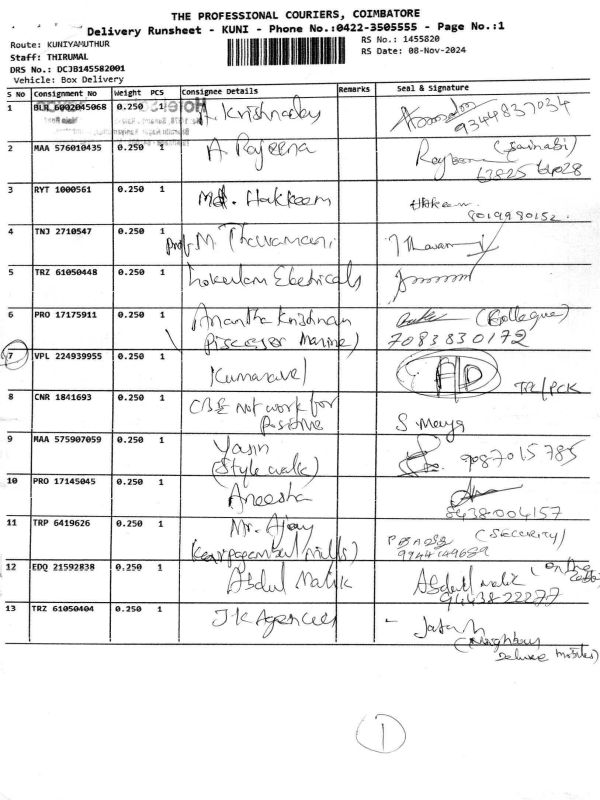 THE PROFESSIONAL COURIERS, COIMBATORE
Delivery Runsheet - KUNI - Phone No.:0422-3505555 - Page No.:1
Route: KUNIYAMUTHUR
RS No.: 1455820
Staff: THIRUMAL
RS Date: 08-Nov-2024
DRS No.: DCJB145582001
Vehicle: Box Delivery
S No Consignment No Weight PCS Consignee Details Remarks Seal & Signature
1 BLR 6002045068 0.250 1 Krishnadas
9344837034
2 MAA 576010435 0.250 1 A Rajeena (Sainabi)
3 RYT 1000561 0.250 1 Md. Hakkeem Hakeem
8019980152
4 TNJ 2710547 0.250 1 Prof. M. Thavamani
5 TRZ 61050448 0.250 1 Electricals
6 PRO 17175911 0.250 1 Anantha Krishnan (Bollegue)
Marine) 7083830172
7 VPL 224939955 0.250 1 Kumaravel A/D
8 CNR 1841693 0.250 1 CBE not work for
Positive S Maya
9 MAA 575907059 0.250 1 Yasin 9087015785
(Style walk)
10 PRO 17145045 0.250 1 Aneesha
8438004157
11 TRP 6419626 0.250 1 Mr. Ajay (SECURITY)
12 EDQ 21592838 0.250 1 Abdul Malik Abdul malik
94438-22277
13 TRZ 61050404 0.250 1 J.K Agencies
Deluxe Mobiles)
1